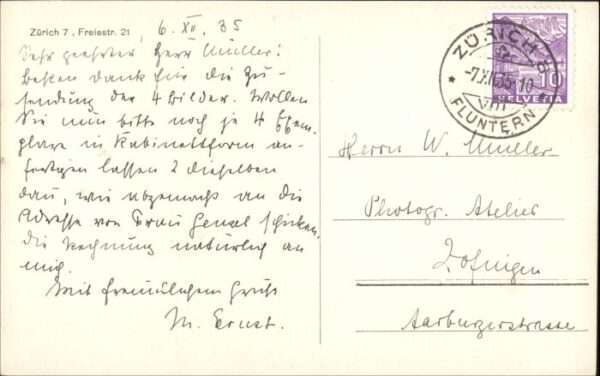 Zürich 7, Freiestr. 21, 6. XII. 35
Sehr geehrter Herr Müller!
besten Dank für die Zu-
sendung der 4 Bilder. Wollen
Sie nun bitte noch je 4 Exem-
plare in Kabinettform an-
fertigen lassen & dieselben
dann, wie abgemacht an die
Adresse von Frau Gensel schicken.
Die Rechnung natürlich an
mich.
Mit freundlichem Gruss
M. Ernst.
ZÜRICH 8
-7.XII.35-10
VIII
* FLUNTERN *
10
HELVETIA
Herrn W. Müller
Photogr. Atelier
Zofingen
Aarburgerstrasse